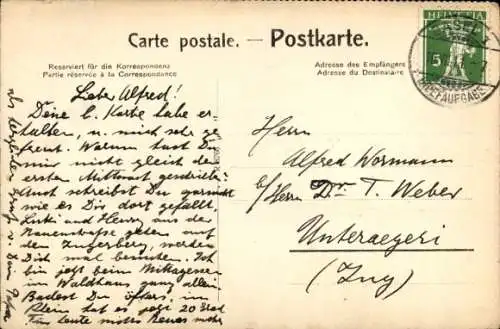 HELVETIA
5
BASEL
BRIEFAUFGABE
Carte postale. — Postkarte.
Reserviert für die Korrespondenz
Partie réservée à la Correspondance
Adresse des Empfängers
Adresse du Destinataire
Lieber Alfred!
Deine l. Karte habe er-
halten, u. mich sehr ge
freut. Warum hast Du
mir nicht gleich den
ersten Mittwoch geschrieben?
Auch schreibst Du garnicht
wie es Dir dort gefällt.
und Henry aus der
gehen auf
den Zugerberg, werden
Dich mal besuchen. Ich
bin jetzt beim Mittagessen
im Waldhaus ganz allein
Badest Du öfters, im
Rhein hat es jetzt 20 Grad
Für heute nichts Neues mehr
Herrn
Alfred Wormann
b/Herrn Dr. T. Weber
Unteraegeri
(Zug)